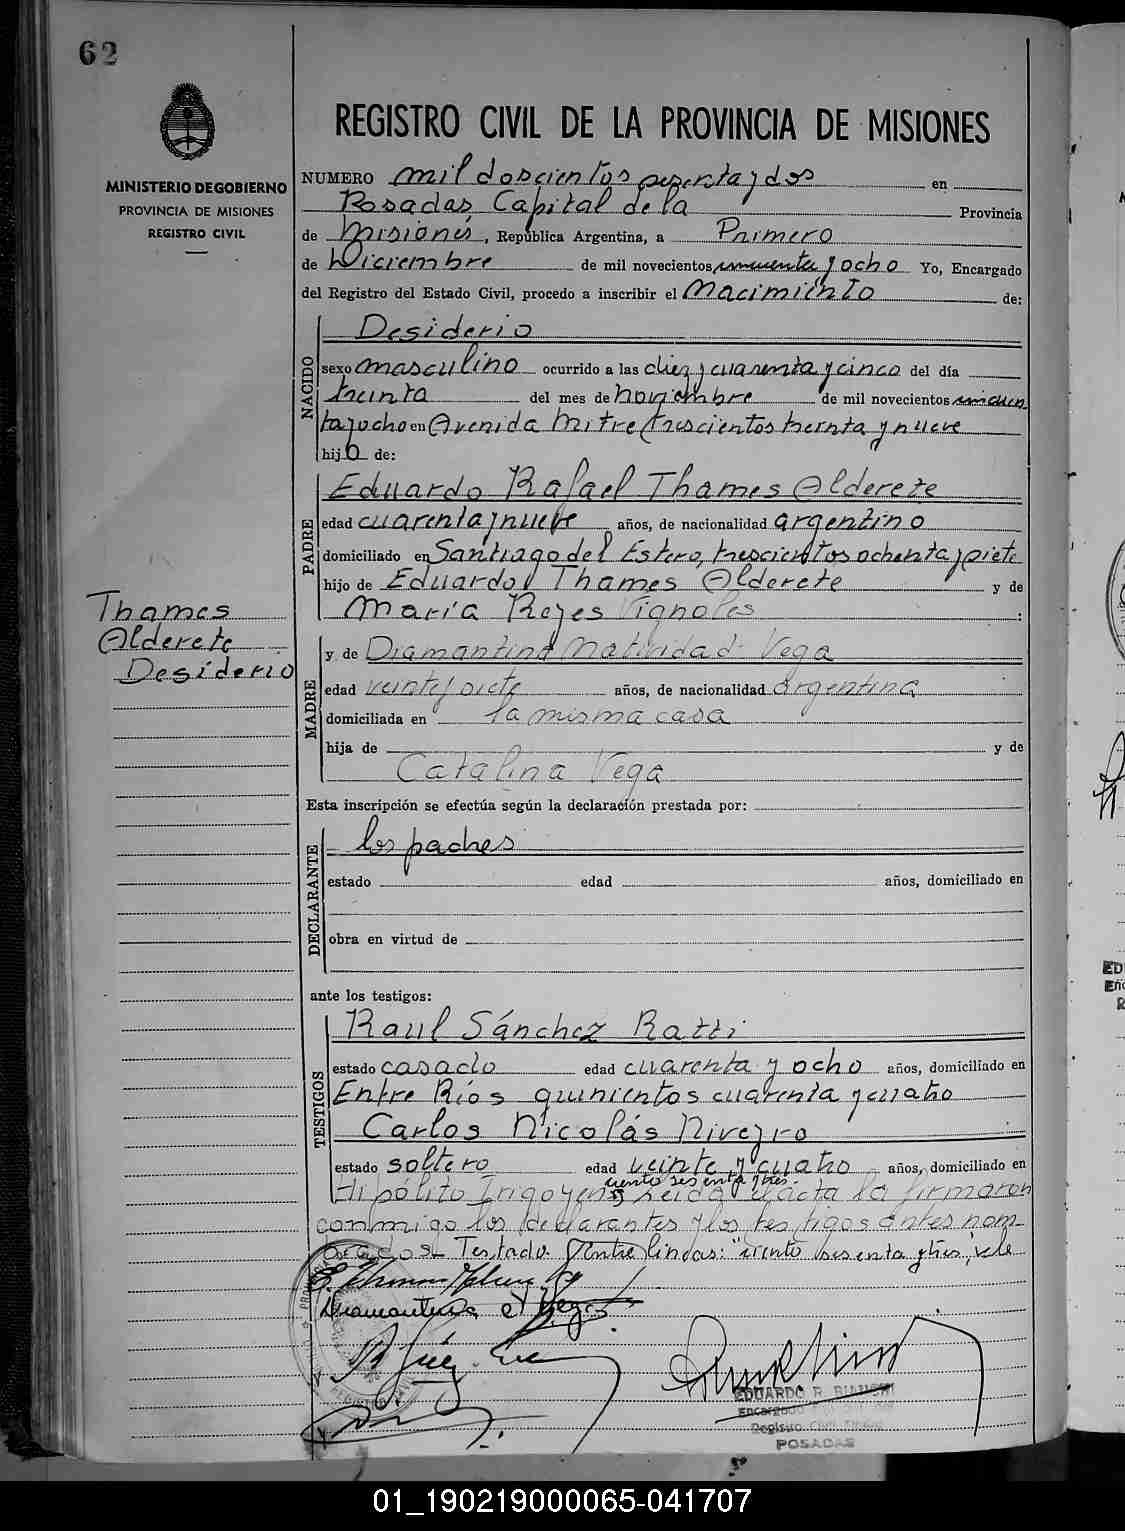 62
MINISTERIO DE GOBIERNO
PROVINCIA DE MISIONES
REGISTRO CIVIL
Thames
Alderete
Desiderio
REGISTRO CIVIL DE LA PROVINCIA DE MISIONES
NUMERO mil doscientos sesenta y dos en
Posadas Capital de la Provincia
de Misiones, República Argentina, a Primero
de Diciembre de mil novecientos cincuenta y ocho Yo, Encargado
del Registro del Estado Civil, procedo a inscribir el Nacimiento de:
NACIDO
Desiderio
sexo masculino ocurrido a las diez y cuarenta y cinco del día
treinta del mes de noviembre de mil novecientos cincuen
ta y ocho en Avenida Mitre trescientos treinta y nueve
hijo de:
PADRE
Eduardo Rafael Thames Alderete
edad cuarenta y nueve años, de nacionalidad argentino
domiciliado en Santiago del Estero, trescientos ochenta y siete
hijo de Eduardo Thames Alderete y de
María Reyes Vignoles :
MADRE
y de Diamantina Natividad Vega
edad veinte y siete años, de nacionalidad argentina
domiciliada en la misma casa
hija de y de
Catalina Vega
Esta inscripción se efectúa según la declaración prestada por:
DECLARANTE
los padres
estado edad años, domiciliado en
obra en virtud de
ante los testigos:
TESTIGOS
Raul Sánchez Ratti
estado casado edad cuarenta y ocho años, domiciliado en
Entre Ríos quinientos cuarenta y cuatro
Carlos Nicolás Niveyro
estado soltero edad veinte y cuatro años, domiciliado en
ciento sesenta y tres
Hipólito Irigoyen Leida el acta la firmaron
conmigo los declarantes y los testigos antes nom-
brados Testado. Entre lineas: "ciento sesenta y tres", vale
EDUARDO R. BIANCHI
Encargado
Registro Civil
POSADAS
01_190219000065-041707